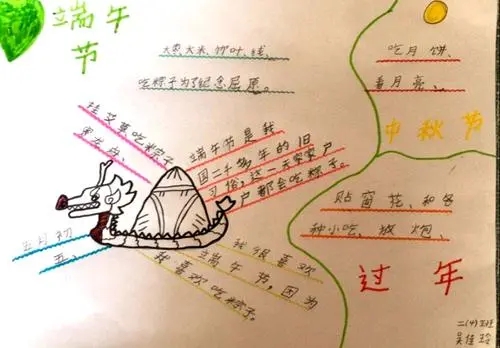 端午
节
大枣大米、竹叶、线、
吃粽子为了纪念屈原。
挂艾草吃粽子
赛龙舟、
端午节是我
国二千多年的旧
习俗,这一天家家户
户都会吃粽子。
五月初
五、
我很喜欢
端午节,因为
我喜欢吃粽子。
吃月饼、
看月亮、
中秋节
贴窗花、和各
种小吃、放炮、
过年
二(4)班
吴佳玲